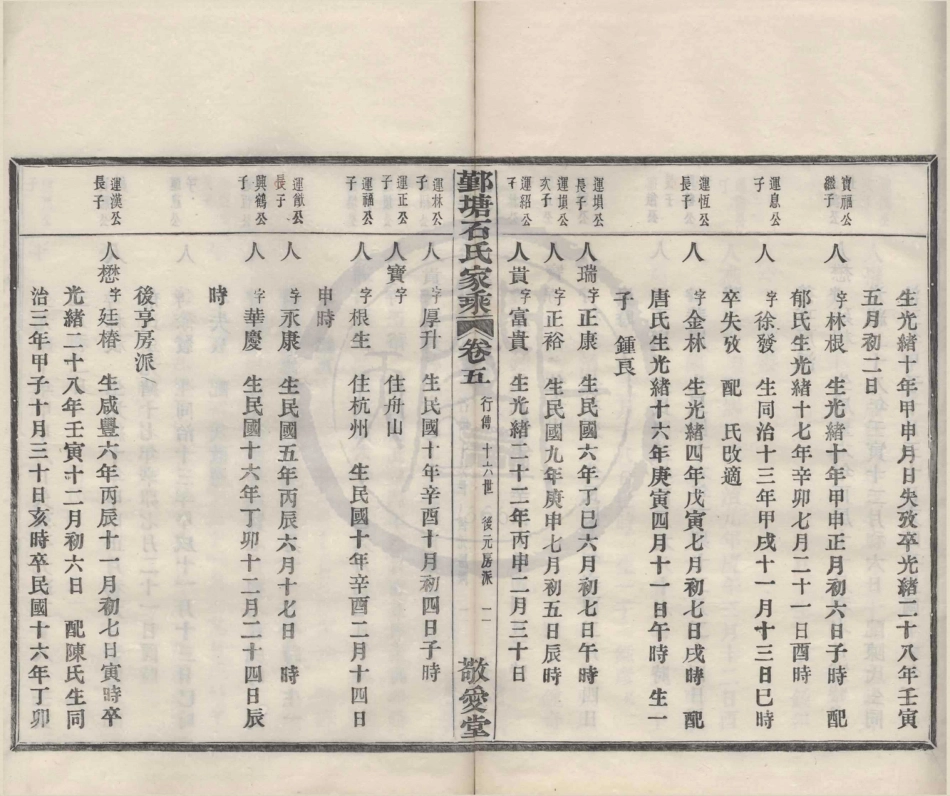 生光緒十年甲申月日失攷卒光緒二十八年壬寅
五月初二日
寶福公
繼子
人　字林根　生光緒十年甲申正月初六日子時　配
郁氏生光緒十七年辛卯七月二十一日酉時
運息公
子
人　字徐發　生同治十三年甲戌十一月十三日巳時
卒失攷　配　氏改適
運恆公
長子
人　字金林　生光緒四年戊寅七月初七日戌時　配
唐氏生光緒十六年庚寅四月十一日午時　生一
子　鍾良
運塤公
長子
人瑞字正康　生民國六年丁巳六月初七日午時
運塤公
次子
人　字正裕　生民國九年庚申七月初五日辰時
運紹公
子
人貴字富貴　生光緒二十二年丙申二月三十日
鄞塘石氏家乘　卷五　行傳　十六世　後元房派　敬愛堂
運林公
子
人　字厚升　生民國十年辛酉十月初四日子時
運正公
子
人寶字　住舟山
運福公
子
人　字根生　住杭州　生民國十年辛酉二月十四日
申時
運敵公
長子
人　字永康　生民國五年丙辰六月十七日　時
興鶴公
子
人　字華慶　生民國十六年丁卯十二月二十四日辰
時
後亨房派
運漢公
長子
人懋字廷椿　生咸豐六年丙辰十一月初七日寅時卒
光緒二十八年壬寅十二月初六日　配陳氏生同
治三年甲子十月三十日亥時卒民國十六年丁卯